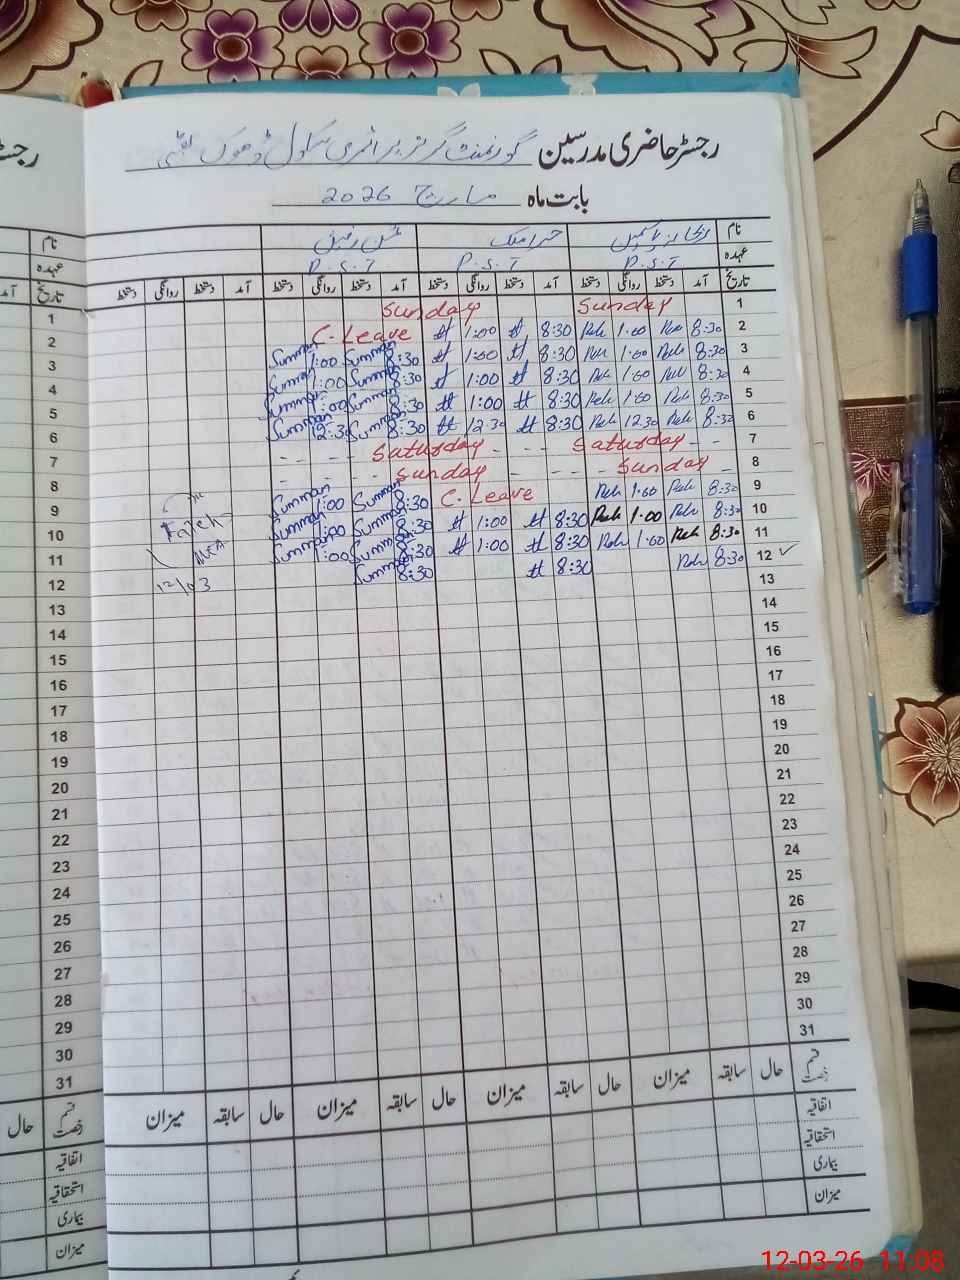 رجسٹر حاضری مدرسین گورنمنٹ گرلز پرائمری سکول ڈھوک
بابت ماہ مارچ 2026
نام
عہدہ P.S.T P.S.T P.S.T
تاریخ آمد دستخط روانگی دستخط آمد دستخط روانگی دستخط آمد دستخط روانگی دستخط آمد دستخط روانگی دستخط
1 Sunday Sunday
2 8:30 Reh 1:00 Reh 8:30 H 1:00 H C. Leave
3 8:30 Reh 1:00 Reh 8:30 H 1:00 H 8:30 Summan 1:00 Summan
4 8:30 Reh 1:00 Reh 8:30 H 1:00 H 8:30 Summan 1:00 Summan
5 8:30 Reh 1:00 Reh 8:30 H 1:00 H 8:30 Summan 1:00 Summan
6 8:30 Reh 12:30 Reh 8:30 H 12:30 H 8:30 Summan 12:30 Summan
7 Saturday Saturday
8 Sunday Sunday
9 8:30 Reh 1:00 Reh C. Leave 8:30 Summan 1:00 Summan
10 8:30 Reh 1:00 Reh 8:30 H 1:00 H 8:30 Summan 1:00 Summan
11 8:30 Reh 1:00 Reh 8:30 H 1:00 H 8:30 Summan 1:00 Summan
12 ✓ 8:30 Reh 8:30 H 8:30 Summan
Fateh
MEA
12/03
13
14
15
16
17
18
19
20
21
22
23
24
25
26
27
28
29
30
31
قسم رخصت حال سابقہ میزان حال سابقہ میزان حال سابقہ میزان حال سابقہ میزان
اتفاقیہ
استحقاقیہ
بیماری
میزان
رجسٹر
نام
عہدہ
تاریخ آمد
1
2
3
4
5
6
7
8
9
10
11
12
13
14
15
16
17
18
19
20
21
22
23
24
25
26
27
28
29
30
31
قسم رخصت حال
اتفاقیہ
استحقاقیہ
بیماری
میزان
12-03-26 11:08